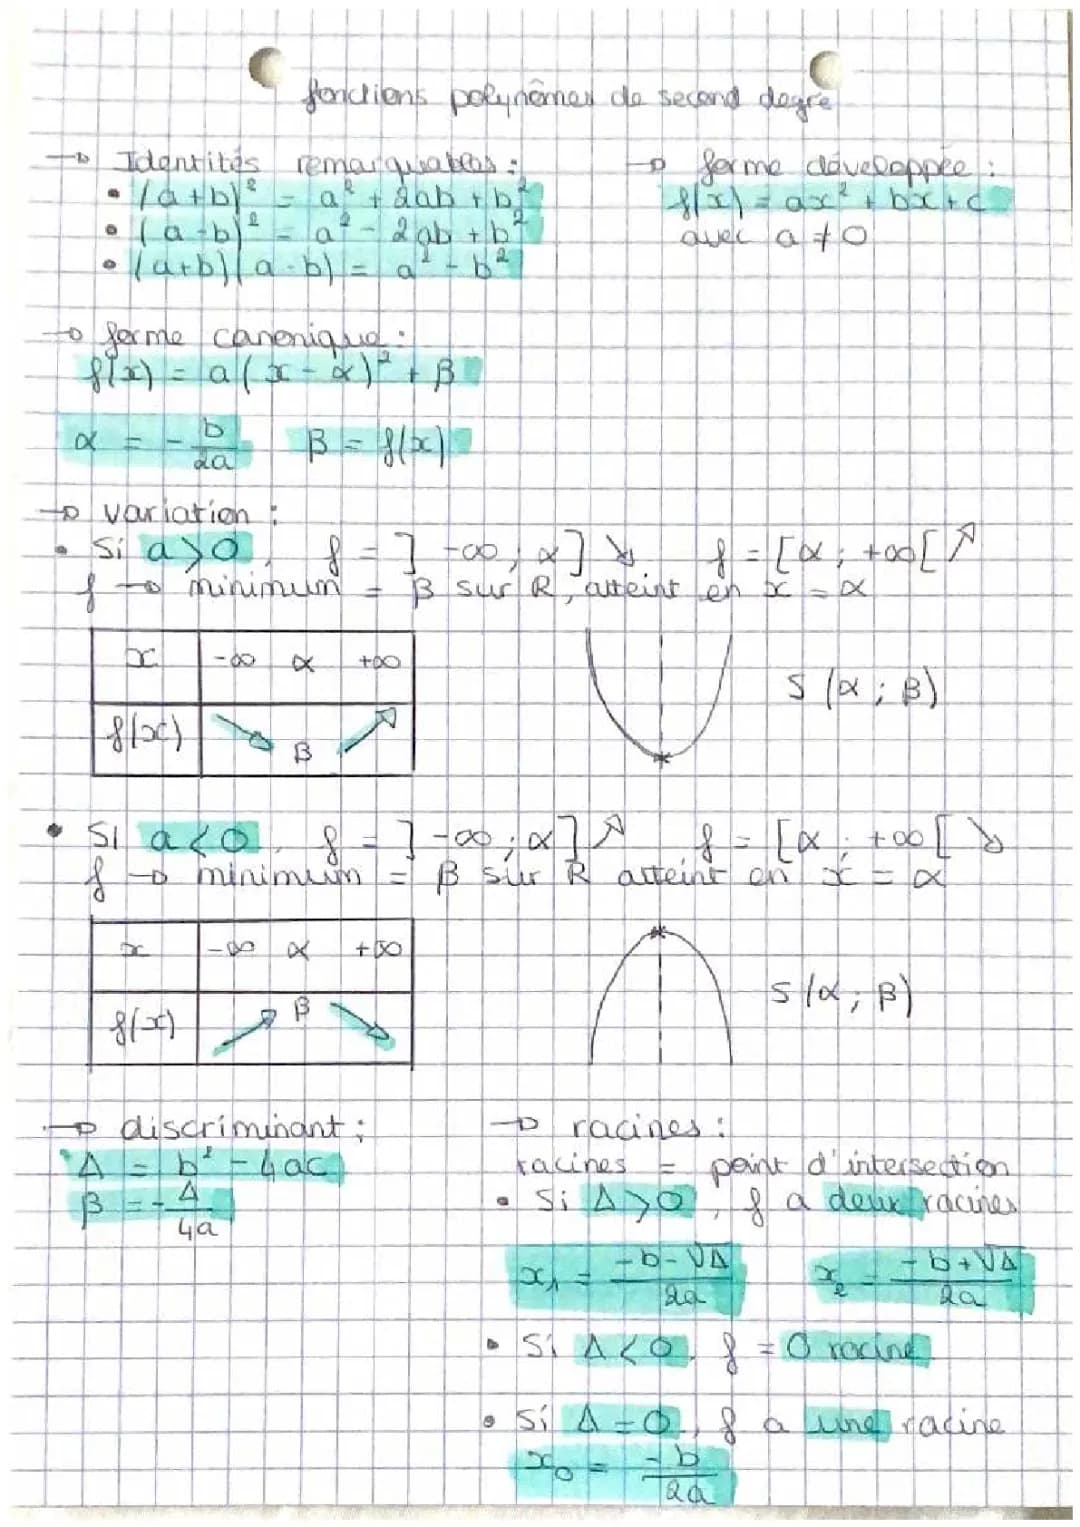 fonctions polynômes de second degré
→ Identités remarquables :
• (a+b)² = a² + 2ab + b²
• (a-b)² = a² - 2ab + b²
• (a+b)(a-b) = a² - b²
→ forme développée :
f(x) = ax² + bx + c
avec a ≠ 0
→ forme canonique :
f(x) = a(x - α)² + β
α = - b/2a    β = f(x)
→ variation :
• Si a>0, f = ]-∞; α] ↘ f = [α; +∞[ ↗
f → minimum = β sur R, atteint en x = α
x -∞ α +∞
f(x) ↘ β ↗
S (α ; β)
• Si a<0, f = ]-∞; α] ↗ f = [α; +∞[ ↘
f → minimum = β sur R atteint en x = α
x -∞ α +∞
f(x) ↗ β ↘
S (α ; β)
→ discriminant :
Δ = b² - 4ac
β = - Δ/4a
→ racines :
racines = point d'intersection
• Si Δ>0, f a deux racines
x₁ = -b-√Δ/2a    x₂ = -b+√Δ/2a
• Si Δ<0, f = 0 racine
• Si Δ=0, f a une racine
x₀ = -b/2a